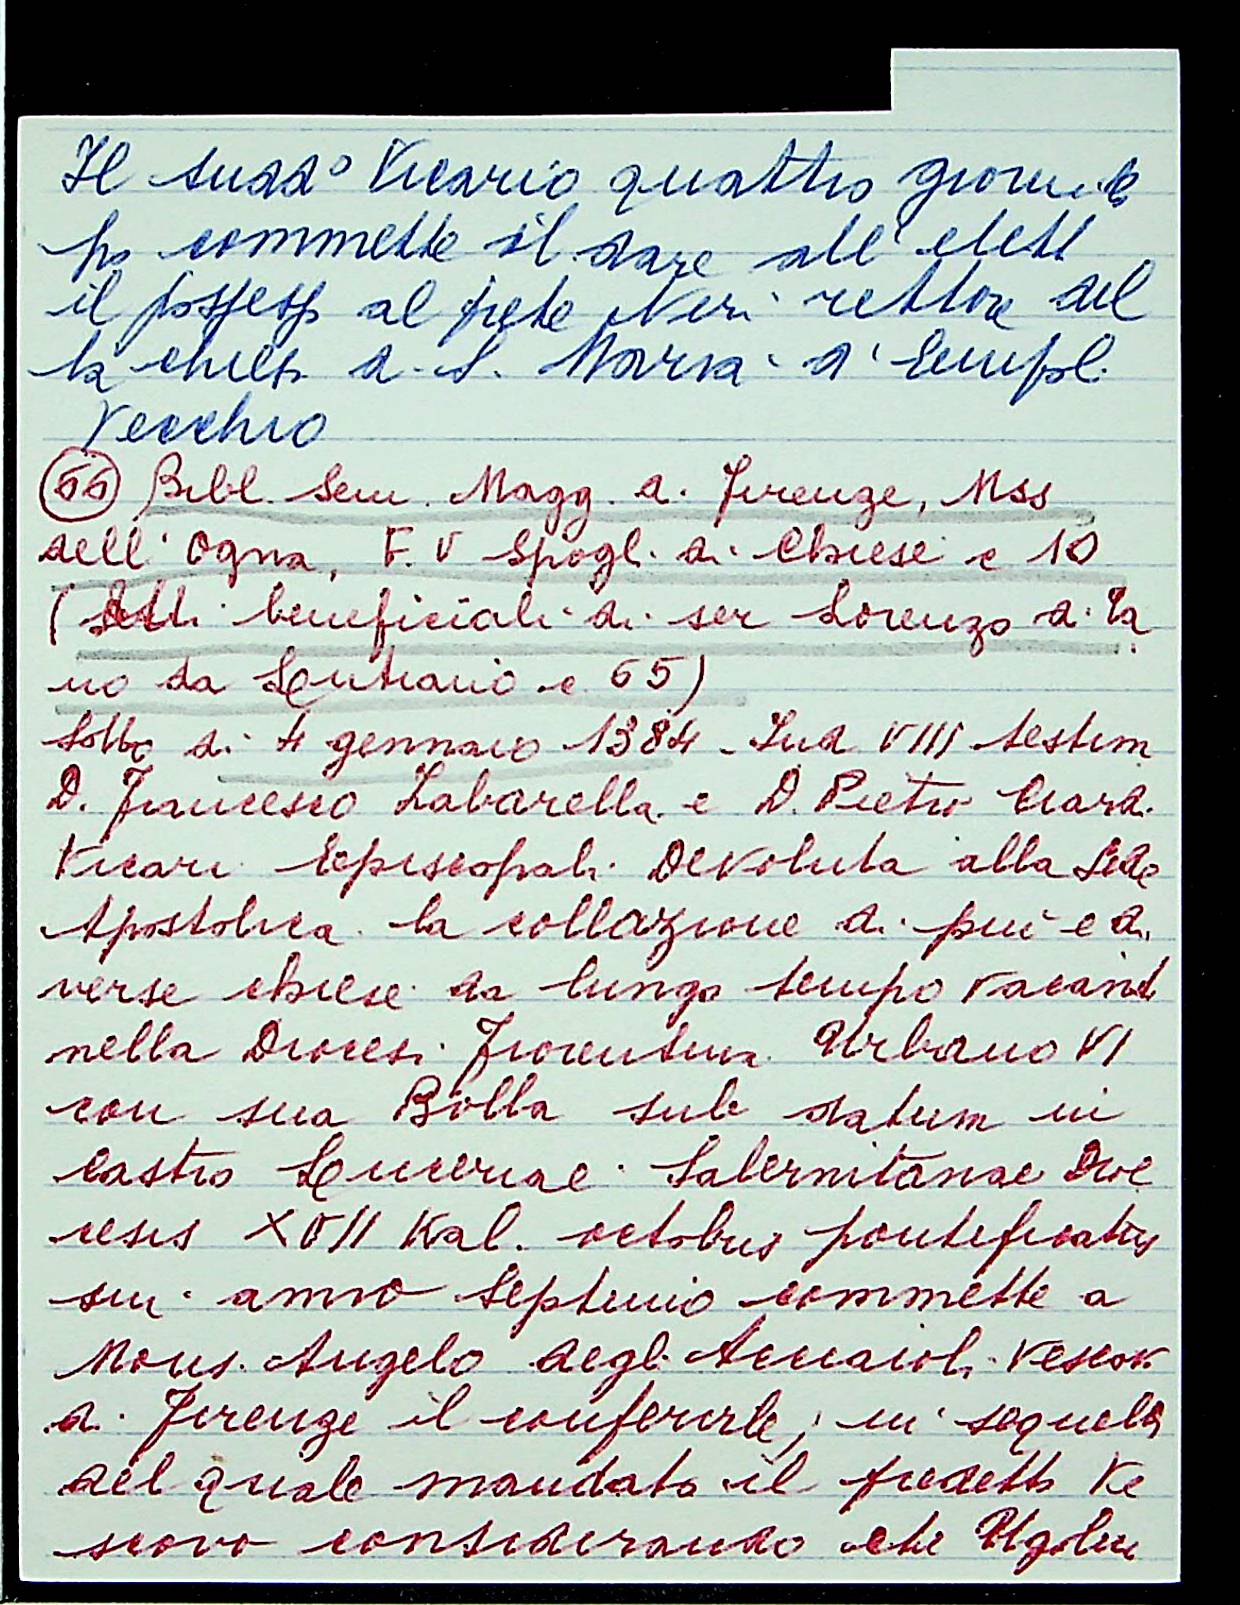 Il sudd° Vicario quattro giorni
po commette il dare all' elett
il possesso al prete Neri rettore del
la chiesa d. S. Maria a' Empol.
Vecchio
(66) Bibl. Sem. Magg. d. Firenze, Mss
dell' Ogna, F. V Spogl. di Chiese c 10
( beneficiali di ser Lorenzo d. Ta
no da c 65)
Sotto di 4 gennaio 1384 - Ind VIII testim
D. Francesco Zabarella e D. Pietro
Vicari Episcopali Devoluta alla Sede
Apostolica la collazione di più e di
verse chiese da lungo tempo vacanti
nella Diocesi Fiorentina Urbano VI
con sua Bolla sub datum in
Castro Luceriae Salernitanae Dioc
cesis XVII Kal. octobris pontificatus
sui anno Septimo commette a
Mons. Angelo degli Acciaioli Vescov
d. Firenze il conferirle, in sequela
del quale mandato il predetto Ve
scovo considerando che Ugolin